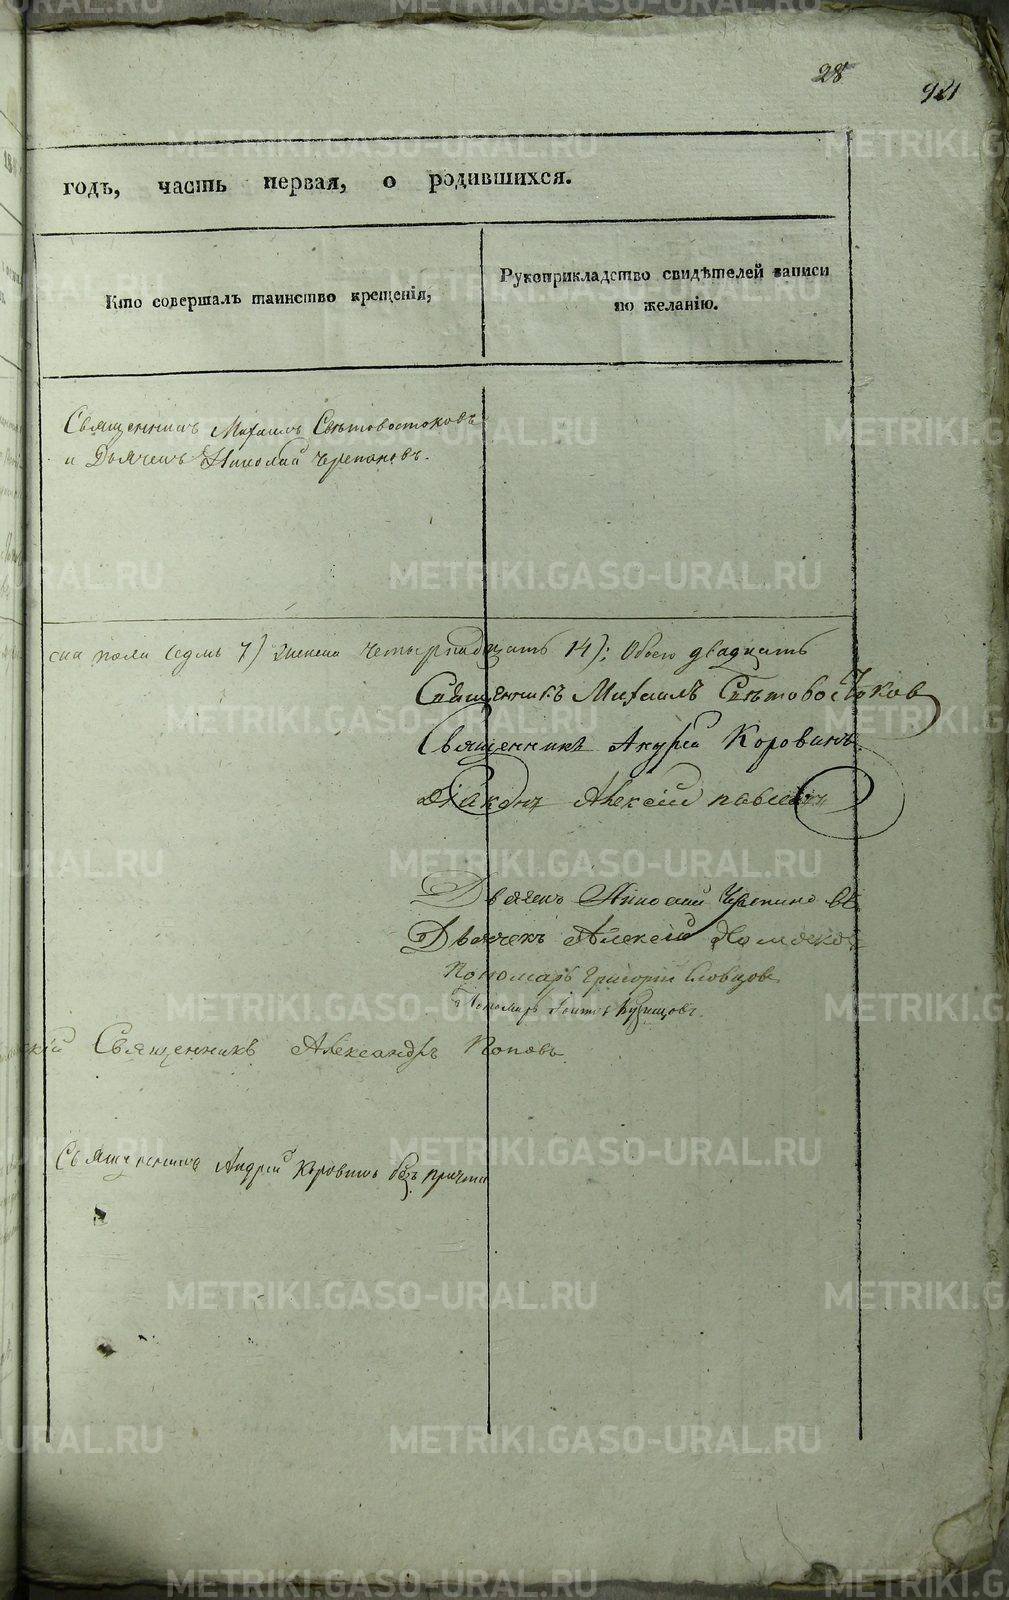 28
921
годъ, часть первая, о родившихся.
Кто совершалъ таинство крещенія,
Рукоприкладство свидѣтелей записи
по желанію.
Священникъ Михаилъ Свѣтовостоковъ
и Дьячекъ Николай Черепановъ.
ска пола седмь 7) женска четырнадцать 14): Обоего двадцать
Священникъ Михаилъ Свѣтовостоковъ
Священникъ Андрей Коровинъ
Діаконъ Алексій
Дьячекъ Николай
Дьячекъ Алексій
Пономарь Григорій Словцовъ
Пономарь
Священникъ Александръ Поповъ
Священникъ Андрей Коровинъ безъ причта
METRIKI.GASO-URAL.RU